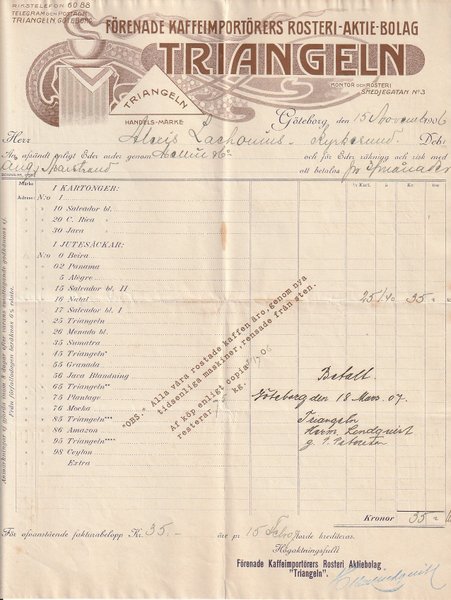 RIKSTELEFON 6088
TELEGRAM OCH POSTADR.
TRIANGELN, GÖTEBORG
FÖRENADE KAFFEIMPORTÖRERS ROSTERI-AKTIE-BOLAG
TRIANGELN
KONTOR OCH ROSTERI
SMEDJEGATAN No 3
TRIANGELN
HANDELS-MÄRKE
Göteborg, den 15 November 1906
Herr Debet
afsändt enligt Eder order genom och för Eder räkning och risk med
att betalas
Märke
1/2 Kart. Kr. Kr.
I KARTONGER:
N:o 1
10 Salvador bl.
20 C. Rica
30 Java
I JUTESÄCKAR:
N:o 0 Beira
02 Panama
5 Alegre
15 Salvador bl. II
16 Natal 25 1.40 35
17 Salvador bl. I
25 Triangeln
26 Menado bl.
35 Sumatra
45 Triangeln*
55 Granada
56 Java Blandning
65 Triangeln**
75 Plantage
76 Mocka
85 Triangeln***
86 Amazon
95 Triangeln****
98 Ceylon
Extra
"OBS." Alla våra rostade kaffen äro, genom nya
tidsenliga maskiner, rensade från sten.
Af köp enligt copia
resterar kg.
Betalt
Göteborg den 18 Mars 07.
Triangeln
Herm. Lindquist
Kronor 35
För ofanstående fakturabelopp Kr. 35 är pr 15 krediteras.
Högaktningsfullt
Förenade Kaffeimportörers Rosteri Aktiebolag
"Triangeln".